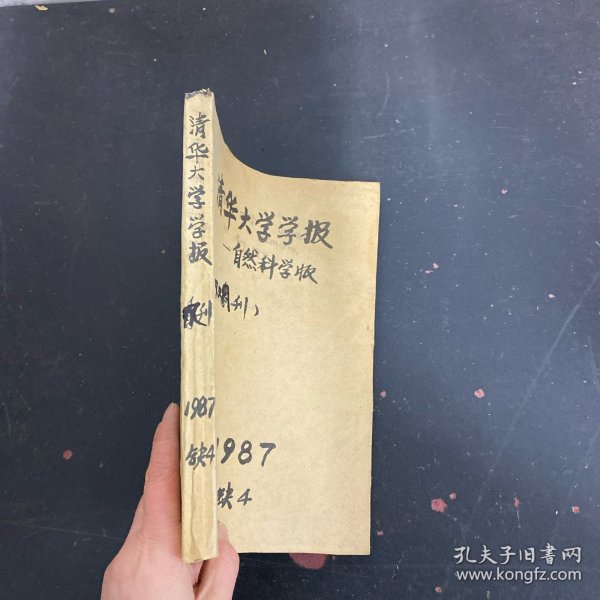 清华大学学报
1987
缺4
清华大学学报
—自然科学版
1987
缺4
孔夫子旧书网
www.kongfz.com